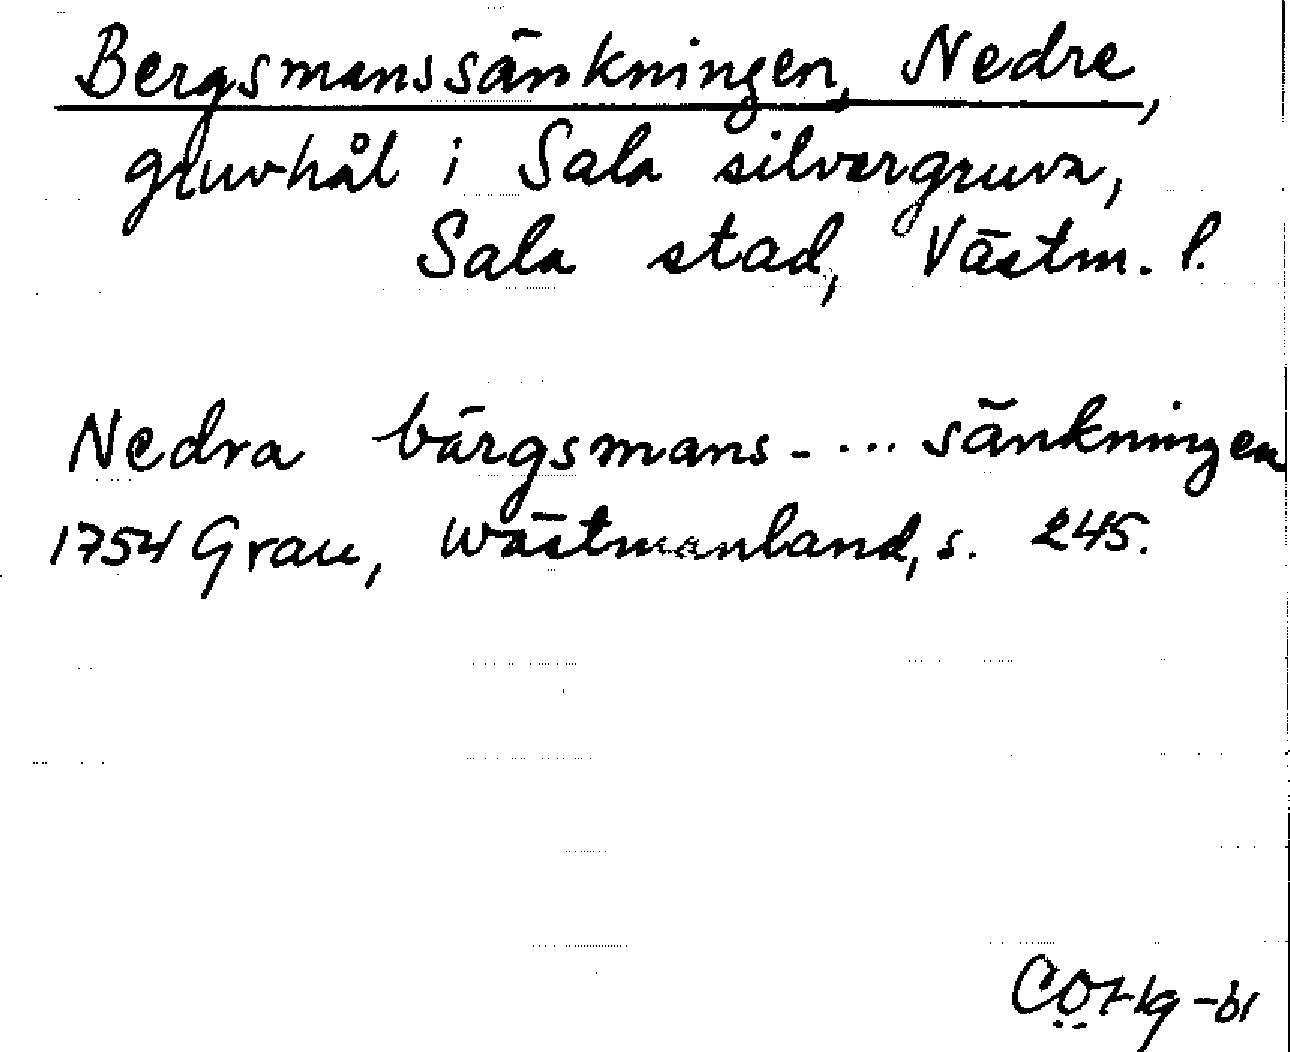 Bergsmanssänkningen, Nedre,
gruvhål i Sala silvergruva,
Sala stad, Västm. l.
Nedra bärgsmans- ... sänkningen
1754 Grau, Wästmanland, s. 245.